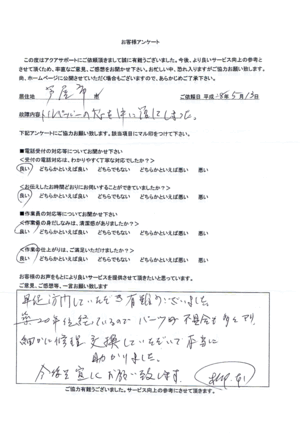 お客様アンケート
この度はアクアサポートにご依頼頂きまして誠に有難うございました。今後、より良いサービス向上の参考と
させて頂くため、率直なご意見、ご感想をお聞かせ下さい。お忙しい中、恐れ入りますがご協力お願い致します。
尚、ホームページに公開させていただく場合もございますので、あらかじめご了承下さい。
居住地 芦屋市 様 ご依頼日 平成28年5月13日
故障内容 トイレットペーパーの 中に落してしまった。
下記アンケートにご協力お願い致します。該当項目にマル印をつけて下さい。
■電話受付の対応等についてお聞かせ下さい
<受付の電話対応は、わかりやすく丁寧な対応でしたか?>
良い どちらかといえば良い どちらでもない どちらかといえば悪い 悪い
<お伝えしたお時間どおりにお伺いすることができていましたか?>
良い どちらかといえば良い どちらでもない どちらかといえば悪い 悪い
■作業員の対応等についてお聞かせ下さい
<作業着の身だしなみは、清潔感がありましたか?>
良い どちらかといえば良い どちらでもない どちらかといえば悪い 悪い
<作業の仕上がりは、ご満足いただけましたか?>
良い どちらかといえば良い どちらでもない どちらかといえば悪い 悪い
お客様のお声をもとにより良いサービスを提供させて頂きたいと思っています。
ご意見、ご感想等、一言お願いします
早速訪問していただき有難うございました。
築20年も経っているので パーツの 不具合も多々アリ、
細かに修理 交換していただいて 本当に
助かりました。
今後も宜しくお願い致します。
ご協力有難うございました。サービス向上の参考にさせて頂きます。